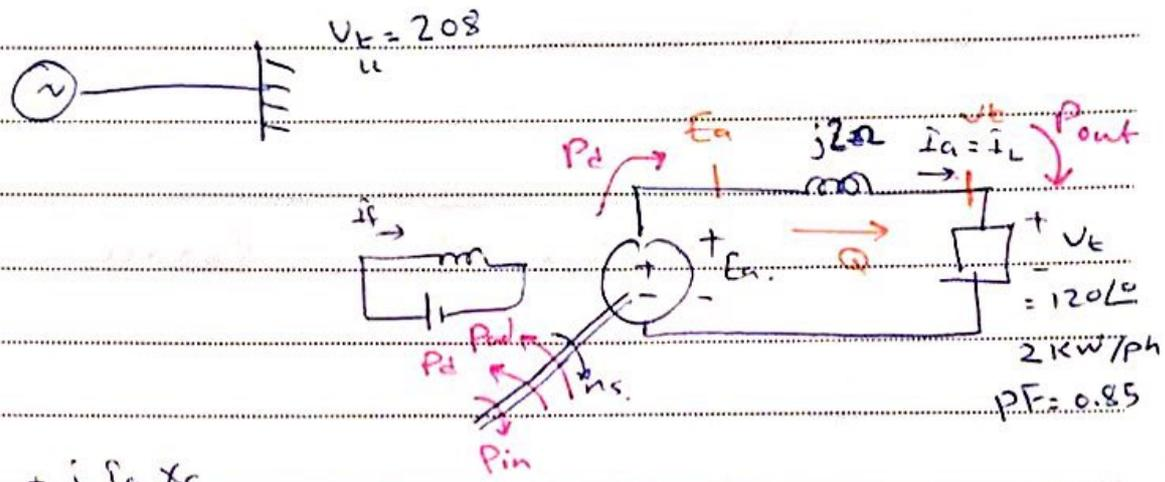 Vt = 208
~
Ea
j2Ω
Ia = IL
Vt
Pout
Pd
if
Q
+
Ea.
-
+
-
+
Vt
-
= 120∠0
2 KW/ph
PF = 0.85
Pd
ns.
Pin
+ j Ia Xs